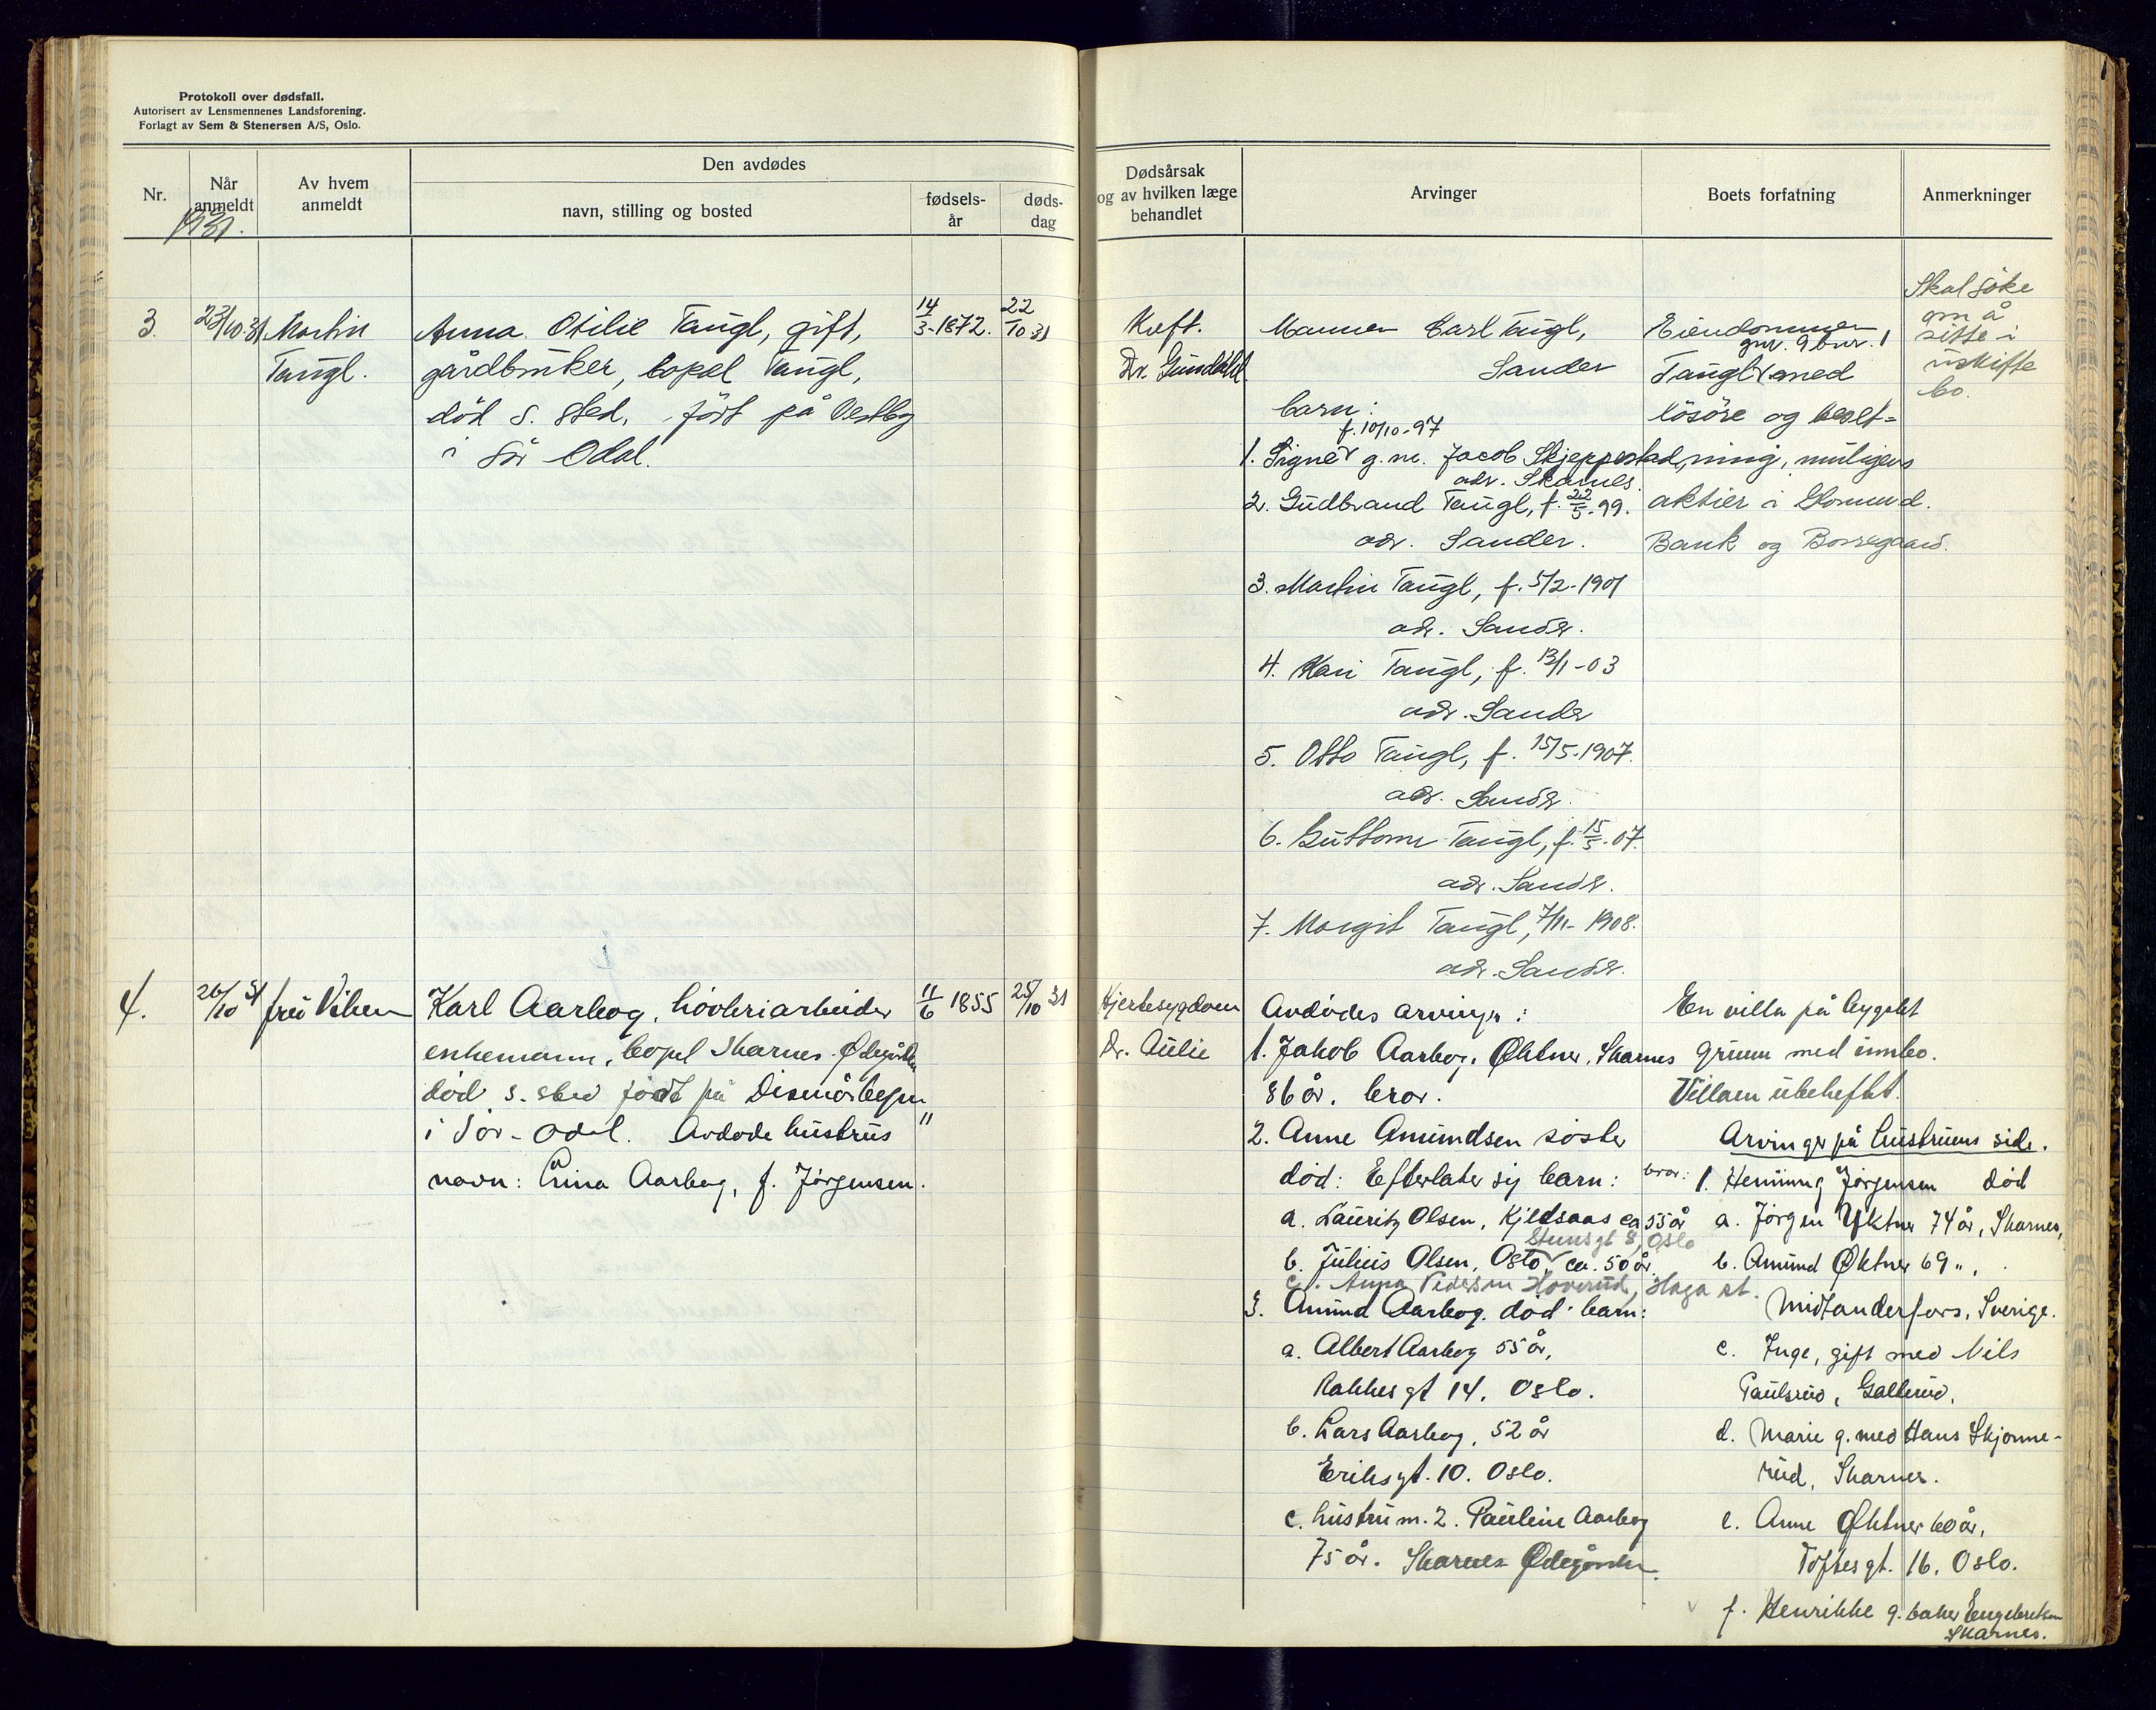 Protokoll over dødsfall.
Autorisert av Lensmennenes Landsforening.
Forlagt av Sem & Stenersen A/S, Oslo.
Nr.
Når anmeldt
1931.
Av hvem anmeldt
Den avdødes
navn, stilling og bosted
fødsels-
år
døds-
dag
Dødsårsak
og av hvilken læge
behandlet
Arvinger
Boets forfatning
Anmerkninger
3. 23/10.31 Martin
Tangl.
Anna Otilie Tangl, gift,
gårdbruker, bopel Tangl,
död s. sted, født på Vestby
i Sör Odal.
14/3-1872.
22/10 31
Kreft.
Dr. Gundahl
Mannen Carl Tangl,
Sander
barn:
f. 10/10-97
1. Signe g.m. Jacob Skjeppestad,
adr. Skarnes.
2. Gudbrand Tangl, f. 22/5.99.
adr. Sander.
3. Martin Tangl, f. 5/2-1901
adr. Sander.
4. Kari Tangl, f. 13/1-03
adr. Sander
5. Otto Tangl, f. 15/5-1907.
adr. Sander.
6. Guttorm Tangl, f. 15/5.07.
adr. Sander.
7. Margit Tangl, 7/11-1908.
adr. Sander.
Eiendommen
gnr. 9 bnr. 1
Tangl med
lösöre og besét=
ning, muligens
aktier i Glommend.
Bank og Borregaard.
Skal söke
om å
sitte i
uskifte
bo.
4. 26/10 31 fru Viken
Karl Aarbog, hövleriarbeider
enkemann, bopel Skarnes Ødegården
död s. sted født på Disenåbegen
i Sör-Odal. Avdöde hustrus "
navn: Lina Aarbog, f. Jörgensen.
11/6 1855
25/10 31
Hjertesygdom
Dr. Aulie
Avdödes arvinger:
1. Jakob Aarbog, Øktner, Skarnes
86 år, bror.
2. Anne Amundsen söster
död: Efterlater sig barn:
a. Lauritz Olsen, Kjeldsaas ca 55 år
Steensgt 8, Oslo
b. Julius Olsen, Oslo ca. 50 år.
c. Anna Pedersen Hoverud, Haga st.
3. Amund Aarbog död: barn:
a. Albert Aarbog 55 år,
Rakkesgt 14. Oslo.
b. Lars Aarbog, 52 år
Eriksgt. 10. Oslo.
c. hustru nr. 2. Pauline Aarbog
75 år. Skarnes Ødegården.
En villa på bygslet
grunn med innbo.
Villaen ubeheftet.
Arvinger på hustruens side.
bror: 1. Henning Jörgensen död
a. Jörgen Øktner 74 år, Skarnes,
b. Amund Øktner 69 ",
Midtanderfors, Sverige.
c. Inge, gift med Nils
Paulsrud, Gallerud.
d. Marie g. med Hans Skjönne-
rud, Skarnes.
e. Anne Øktner 60 år,
Toftesgt. 16. Oslo.
f. Henrikke g. baker Engebretsen
Skarnes.